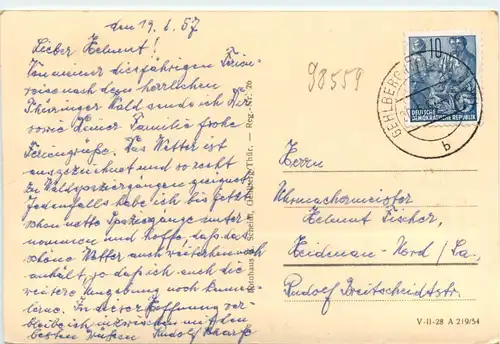 den 19. 6. 57
Lieber Helmut!
Von meiner diesjährigen Ferien-
reise nach dem herrlichen
Thüringer Wald sende ich Dir
sowie Deiner Familie frohe
Feriengrüße. Das Wetter ist
ausgezeichnet und so recht
zu Waldspaziergängen geeignet.
Jedenfalls habe ich bis jetzt
schon nette Spaziergänge unter-
nommen und hoffe, daß das
schöne Wetter auch weiterhin noch
anhält, so daß ich auch die
weitere Umgebung noch kennen
lerne. In dieser Hoffnung ver-
bleibe ich inzwischen mit den
besten Grüßen Rudolf
98559
10
DEUTSCHE
DEMOKRATISCHE REPUBLIK
GEHLBERG
b
Herrn
Uhrmachermeister
Helmut Fischer,
Heidenau-Nord / Sa.,
Rudolf Breitscheidtstr.
Scheidt, Gehlberg/Thür. — Reg.-Nr. 26
V-11-28 A 219/54